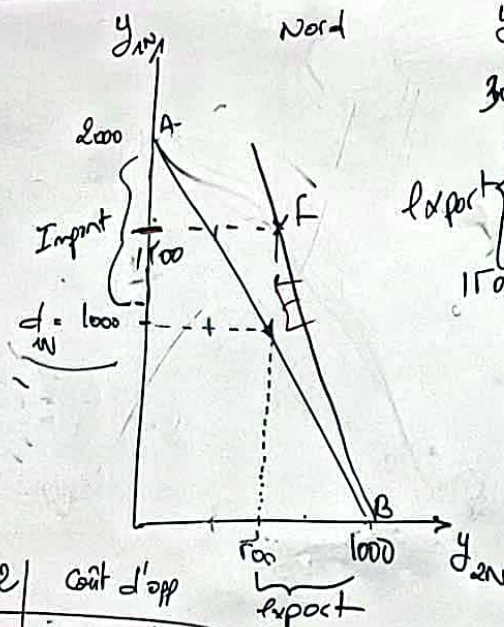 Y₁N₁
Nord
2000
A
30
Import
E
Export
1500
150
d₁N = 1000
B
500
1000
Y₂N
export
2
Coût d'opp